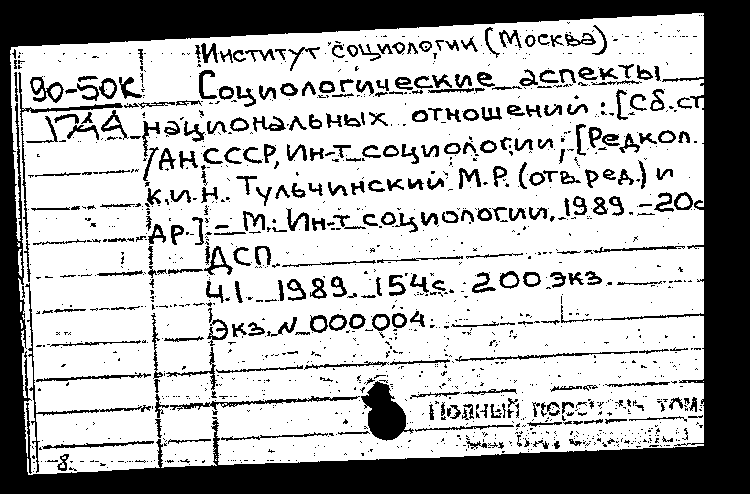 Институт социологии (Москва)
90-50К Социологические аспекты
1744 национальных отношений: [Сб. ст.
/АН СССР, Ин-т социологии; [Редкол.
к.и.н. Тульчинский М.Р. (отв. ред.) и
др.] – М.: Ин-т социологии, 1989. – 20с
ДСП
Ч.1. 1989. 154с. 200 экз.
Экз. N 000004.
Полный перечень том
8.